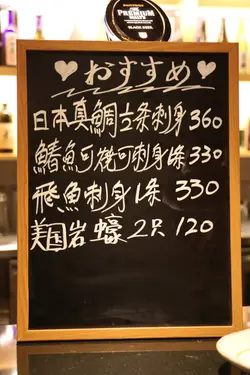 THE PREMIUM MALT'S
BLACK BEER
おすすめ
日本真鯛立条刺身360
鯖魚可燒可刺身1条330
飛魚刺身1条 330
美国岩蠔2只120